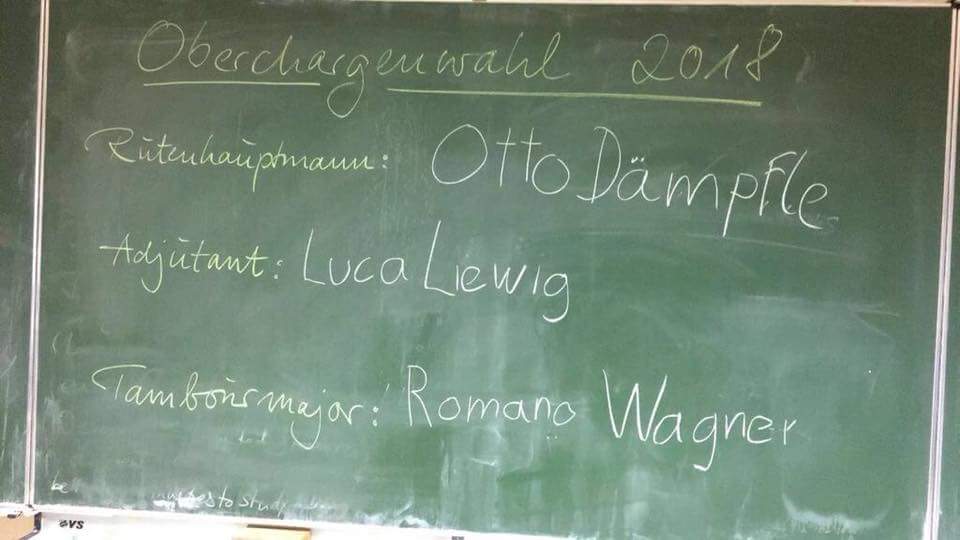 Oberchargenwahl 2018
Rutenhauptmann: Otto Dämpfle
Adjutant: Luca Liewig
Tambourmajor: Romano Wagner
evs